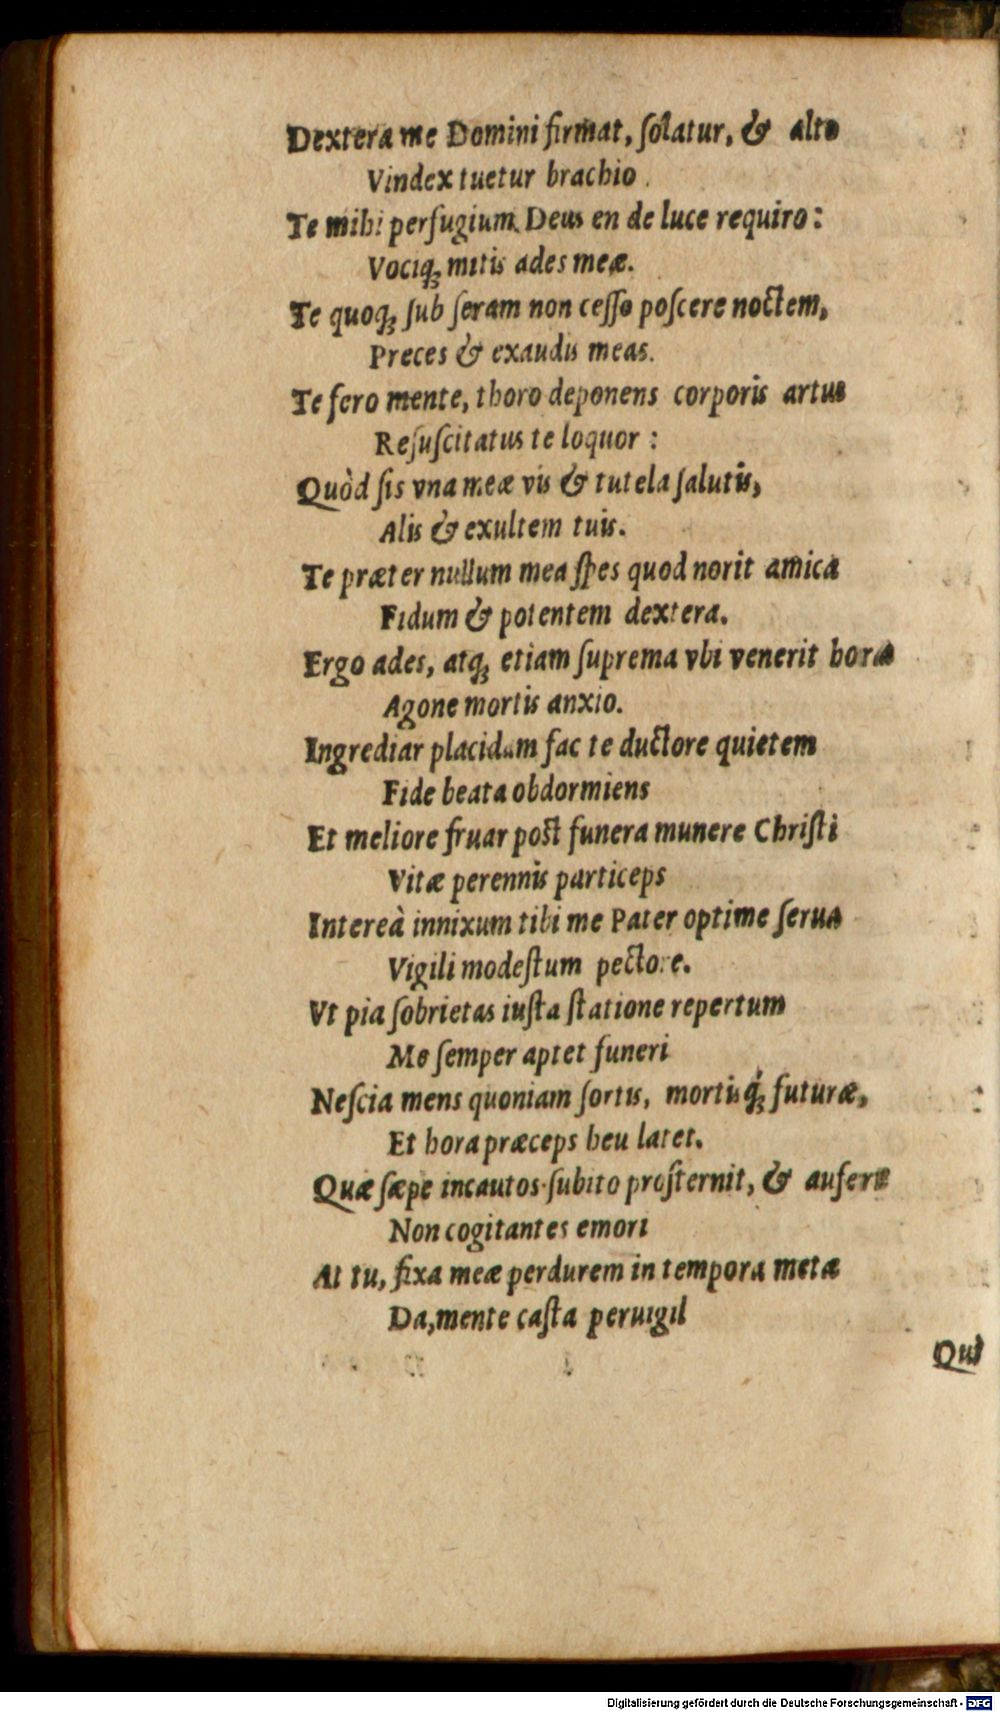 Dextera me Domini firmat, ſolatur, & alto
Vindex tuetur brachio.
Te mihi perfugium, Deus en de luce requiro:
Vociq́ꝫ mitis ades meæ.
Te quoqꝫ ſub ſeram non ceſſo poſcere noctem,
Preces & exaudis meas.
Te fero mente, thoro deponens corporis artus
Reſuſcitatus te loquor:
Quòd ſis vna meæ vis & tutela ſalutis,
Alis & exultem tuis.
Te præter nullum mea ſpes quod norit amica
Fidum & potentem dextera.
Ergo ades, atqꝫ etiam ſuprema vbi venerit hora
Agone mortis anxio.
Ingrediar placidam fac te ductore quietem
Fide beata obdormiens
Et meliore fruar poſt funera munere Chriſti
Vitæ perennis particeps
Intereà innixum tibi me Pater optime ſerua
Vigili modeſtum pectore.
Vt pia ſobrietas iuſta ſtatione repertum
Me ſemper aptet funeri
Neſcia mens quoniam ſortis, mortisq́ꝫ futuræ,
Et hora præceps heu latet.
Quæ ſæpe incautos ſubito proſternit, & aufert
Non cogitantes emori
At tu, fixa meæ perdurem in tempora metæ
Da, mente caſta peruigil
Qui
Digitalisierung gefördert durch die Deutsche Forschungsgemeinschaft - DFG